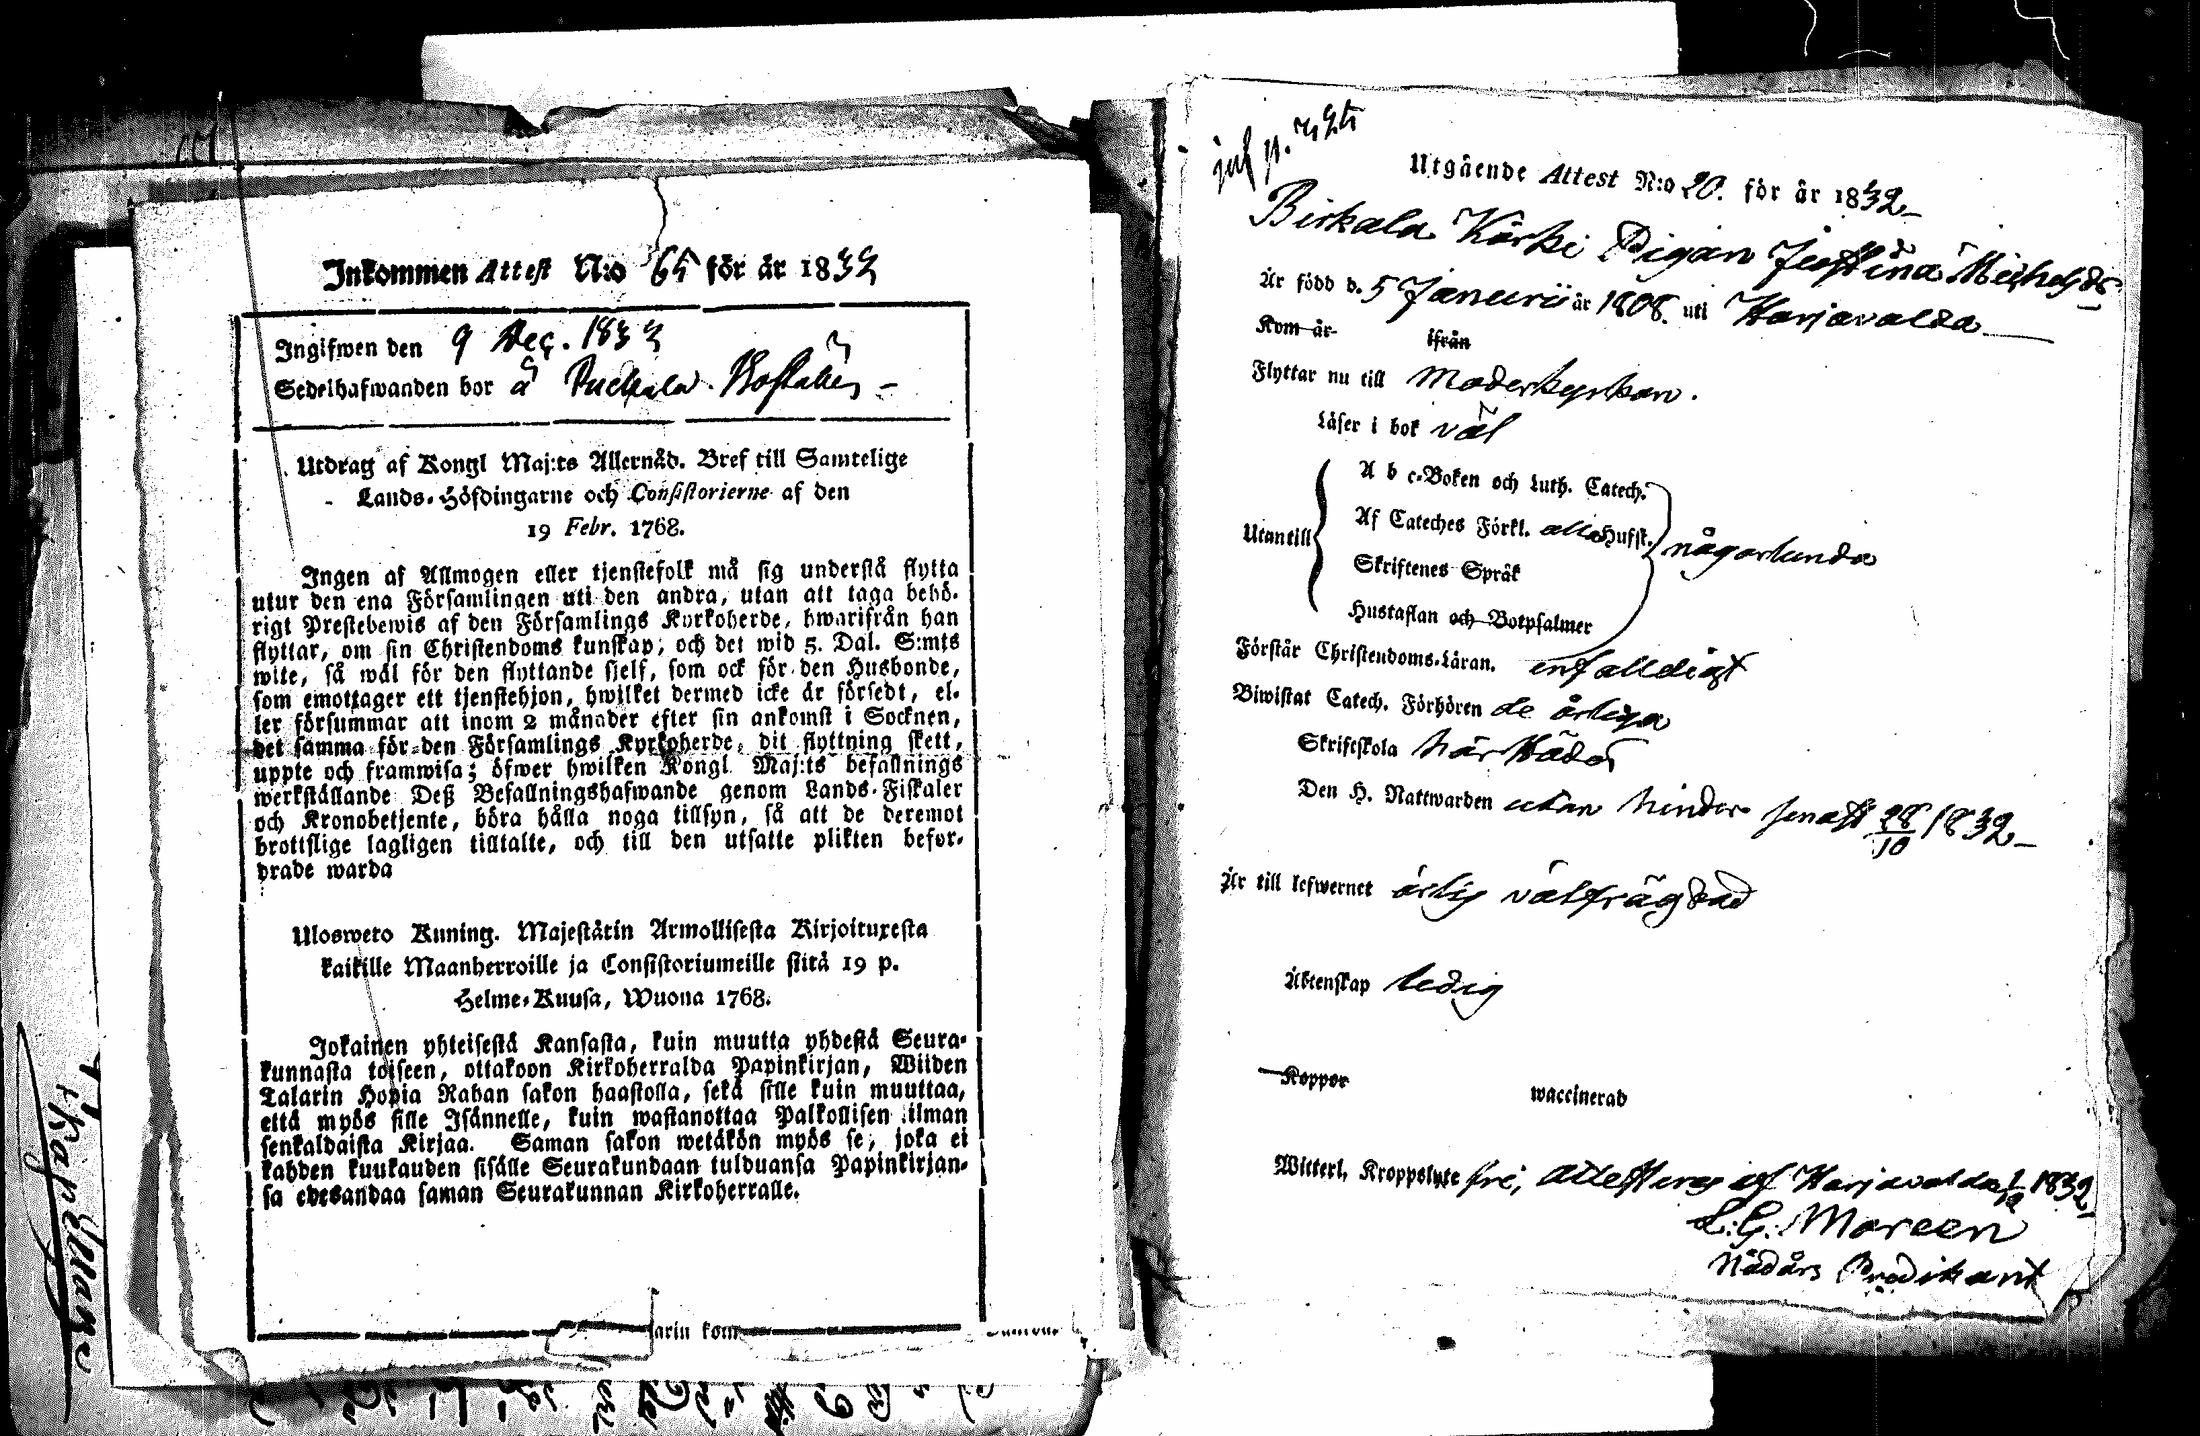 Inkommen Attest N:o 65 för år 1832
Ingifwen den 9 Dec. 1832
Sedelhafwanden bor å
Utdrag af Kongl Maj:ts Allernåd. Bref till Samtelige
Lands-Höfdingarne och Consistorierne af den
19 Febr. 1768.
Ingen af Allmogen eller tjenstefolk må sig understå flytta
utur den ena Församlingen uti den andra, utan att taga behö-
rigt Prestebewis af den Församlings Kyrkoherde, hwarifrån han
flyttar, om sin Christendoms kunskap; och det wid 5. Dal. S:mts
wite, så wäl för den flyttande sjelf, som ock för den Husbonde,
som emottager ett tjenstehjon, hwilket dermed icke är försedt, el-
ler försummar att inom 2 månader efter sin ankomst i Socknen,
det samma för den Församlings Kyrkoherde, dit flyttning skett,
uppte och framwisa; öfwer hwilken Kongl Maj:ts befallnings
werkställande Deß Befallningshafwande genom Lands-Fiskaler
och Kronobetjente, böra hålla noga tillsyn, så att de deremot
brottslige lagligen tilltalte, och till den utsatte plikten befor-
drade warda
Ulosweto Kuning. Majestätin Armollisesta Kirjoituxesta
kaikille Maanherroille ja Consistoriumeille siitä 19 p.
Helme-Kuusa, Wuona 1768.
Jokainen yhteisestä Kansasta, kuin muutta yhdestä Seura-
kunnasta toiseen, ottakoon Kirkoherralda Papinkirjan, Wiiden
Talarin Hopia Rahan sakon haastolla, sekä sille kuin muuttaa,
että myös sille Isännelle, kuin wastanottaa Palkollisen ilman
senkaldaista Kirjaa. Saman sakon wetäkön myös se, joka ei
kahden kuukauden sisälle Seurakundaan tulduansa Papinkirjan-
sa edesandaa saman Seurakunnan Kirkoherralle.
arin kom
Utgående Attest N:o 20. för år 1832
Birkala Kärki Pigan Justina Michelsdr
Är född d. 5 Januarii år 1808. uti Harjavalda
Kom år ifrån
Flyttar nu till Moderkyrkan.
Läser i bok väl
A b c-Boken och Luth. Catech.
Af Cateches Förkl. alla Hufst.
Utantill någorlunda
Skriftenes Språk
Hustaflan och Botpsalmer
Förstår Christendoms-Läran. enfaldigt
Biwistat Catech. Förhören de årliga
Skriftskola härstädes
Den H. Nattwarden utan hinder senast 28/10 1832
Är till lefwernet ärlig välfrägdad
Äktenskap ledig
Koppor waccinerad
Witterl. Kroppslyte fri, Attesteras af Harjavalda 1/12 1832
L: G: Moreen
Nådårs Predikant